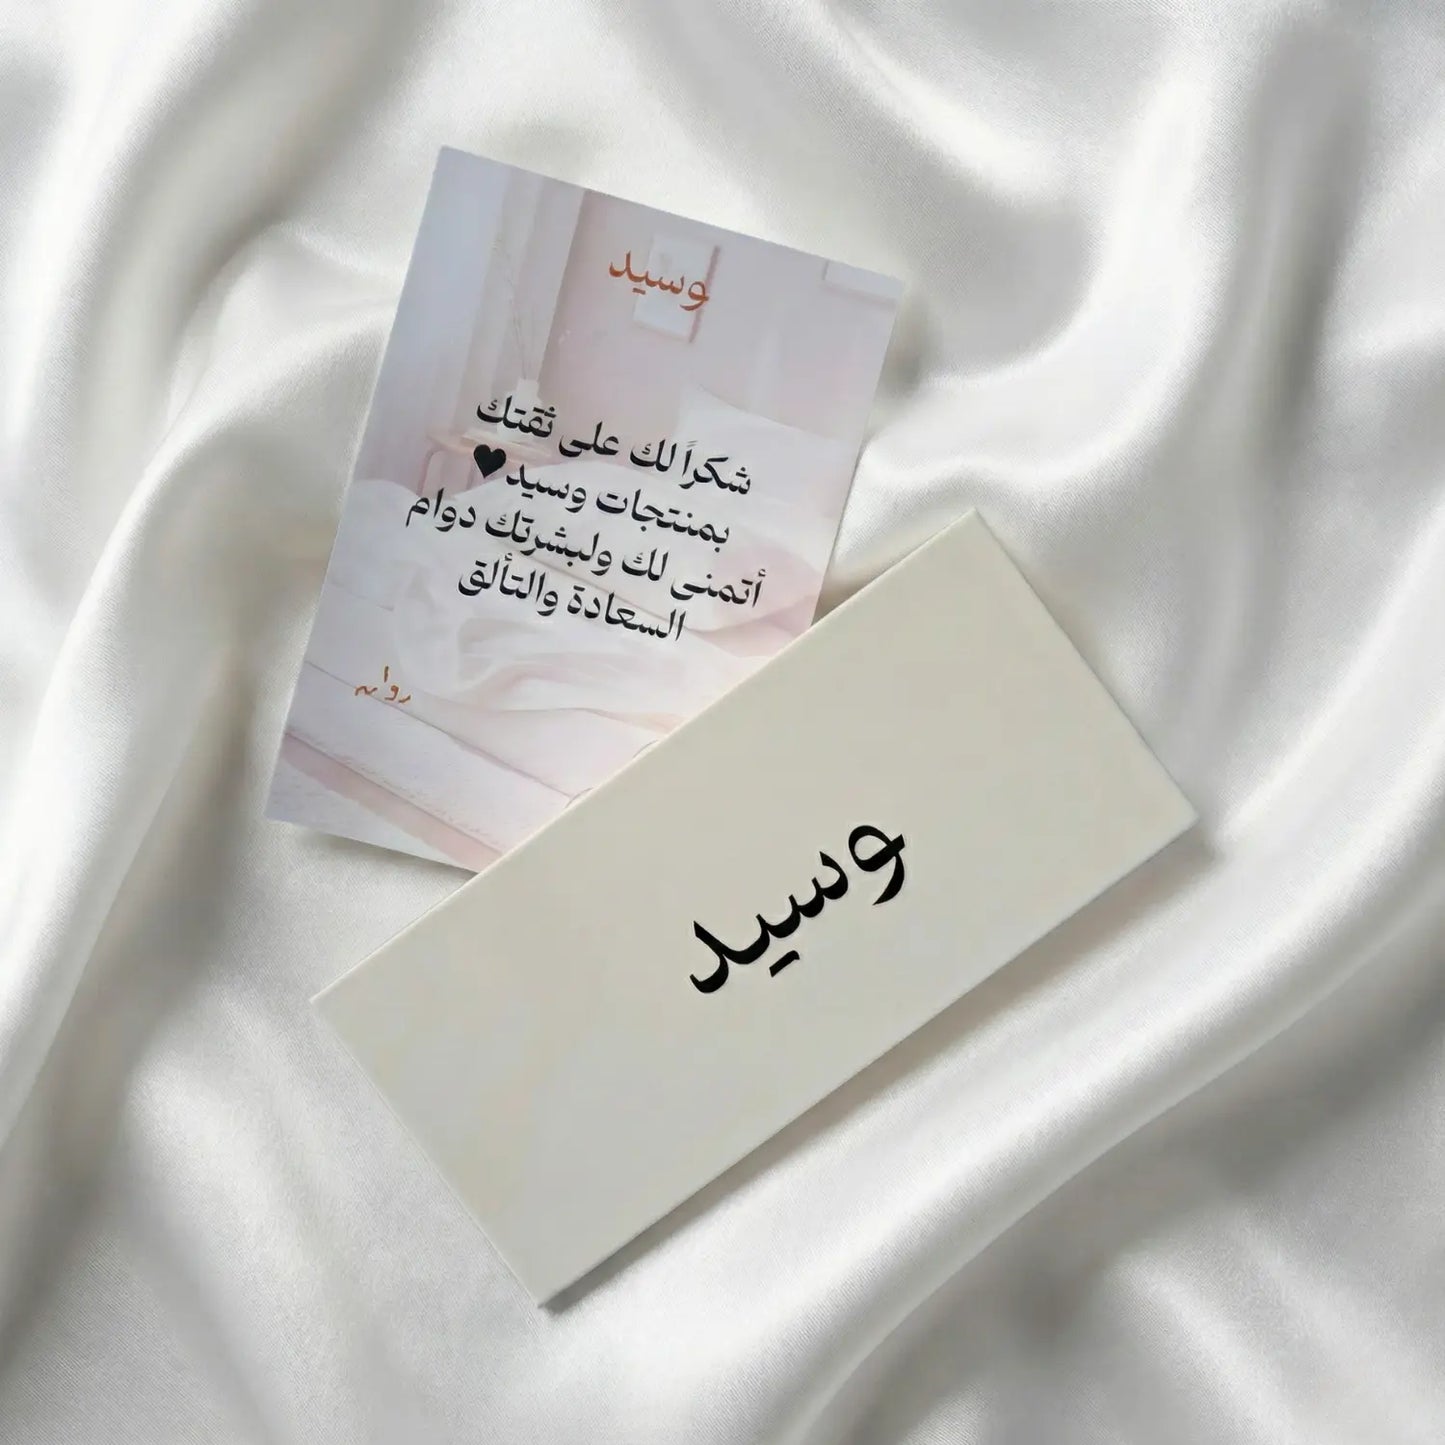 وسيد
شكراً لك على ثقتك
بمنتجات وسيد🖤
أتمنى لك ولبشرتك دوام
السعادة والتألق
وسيد